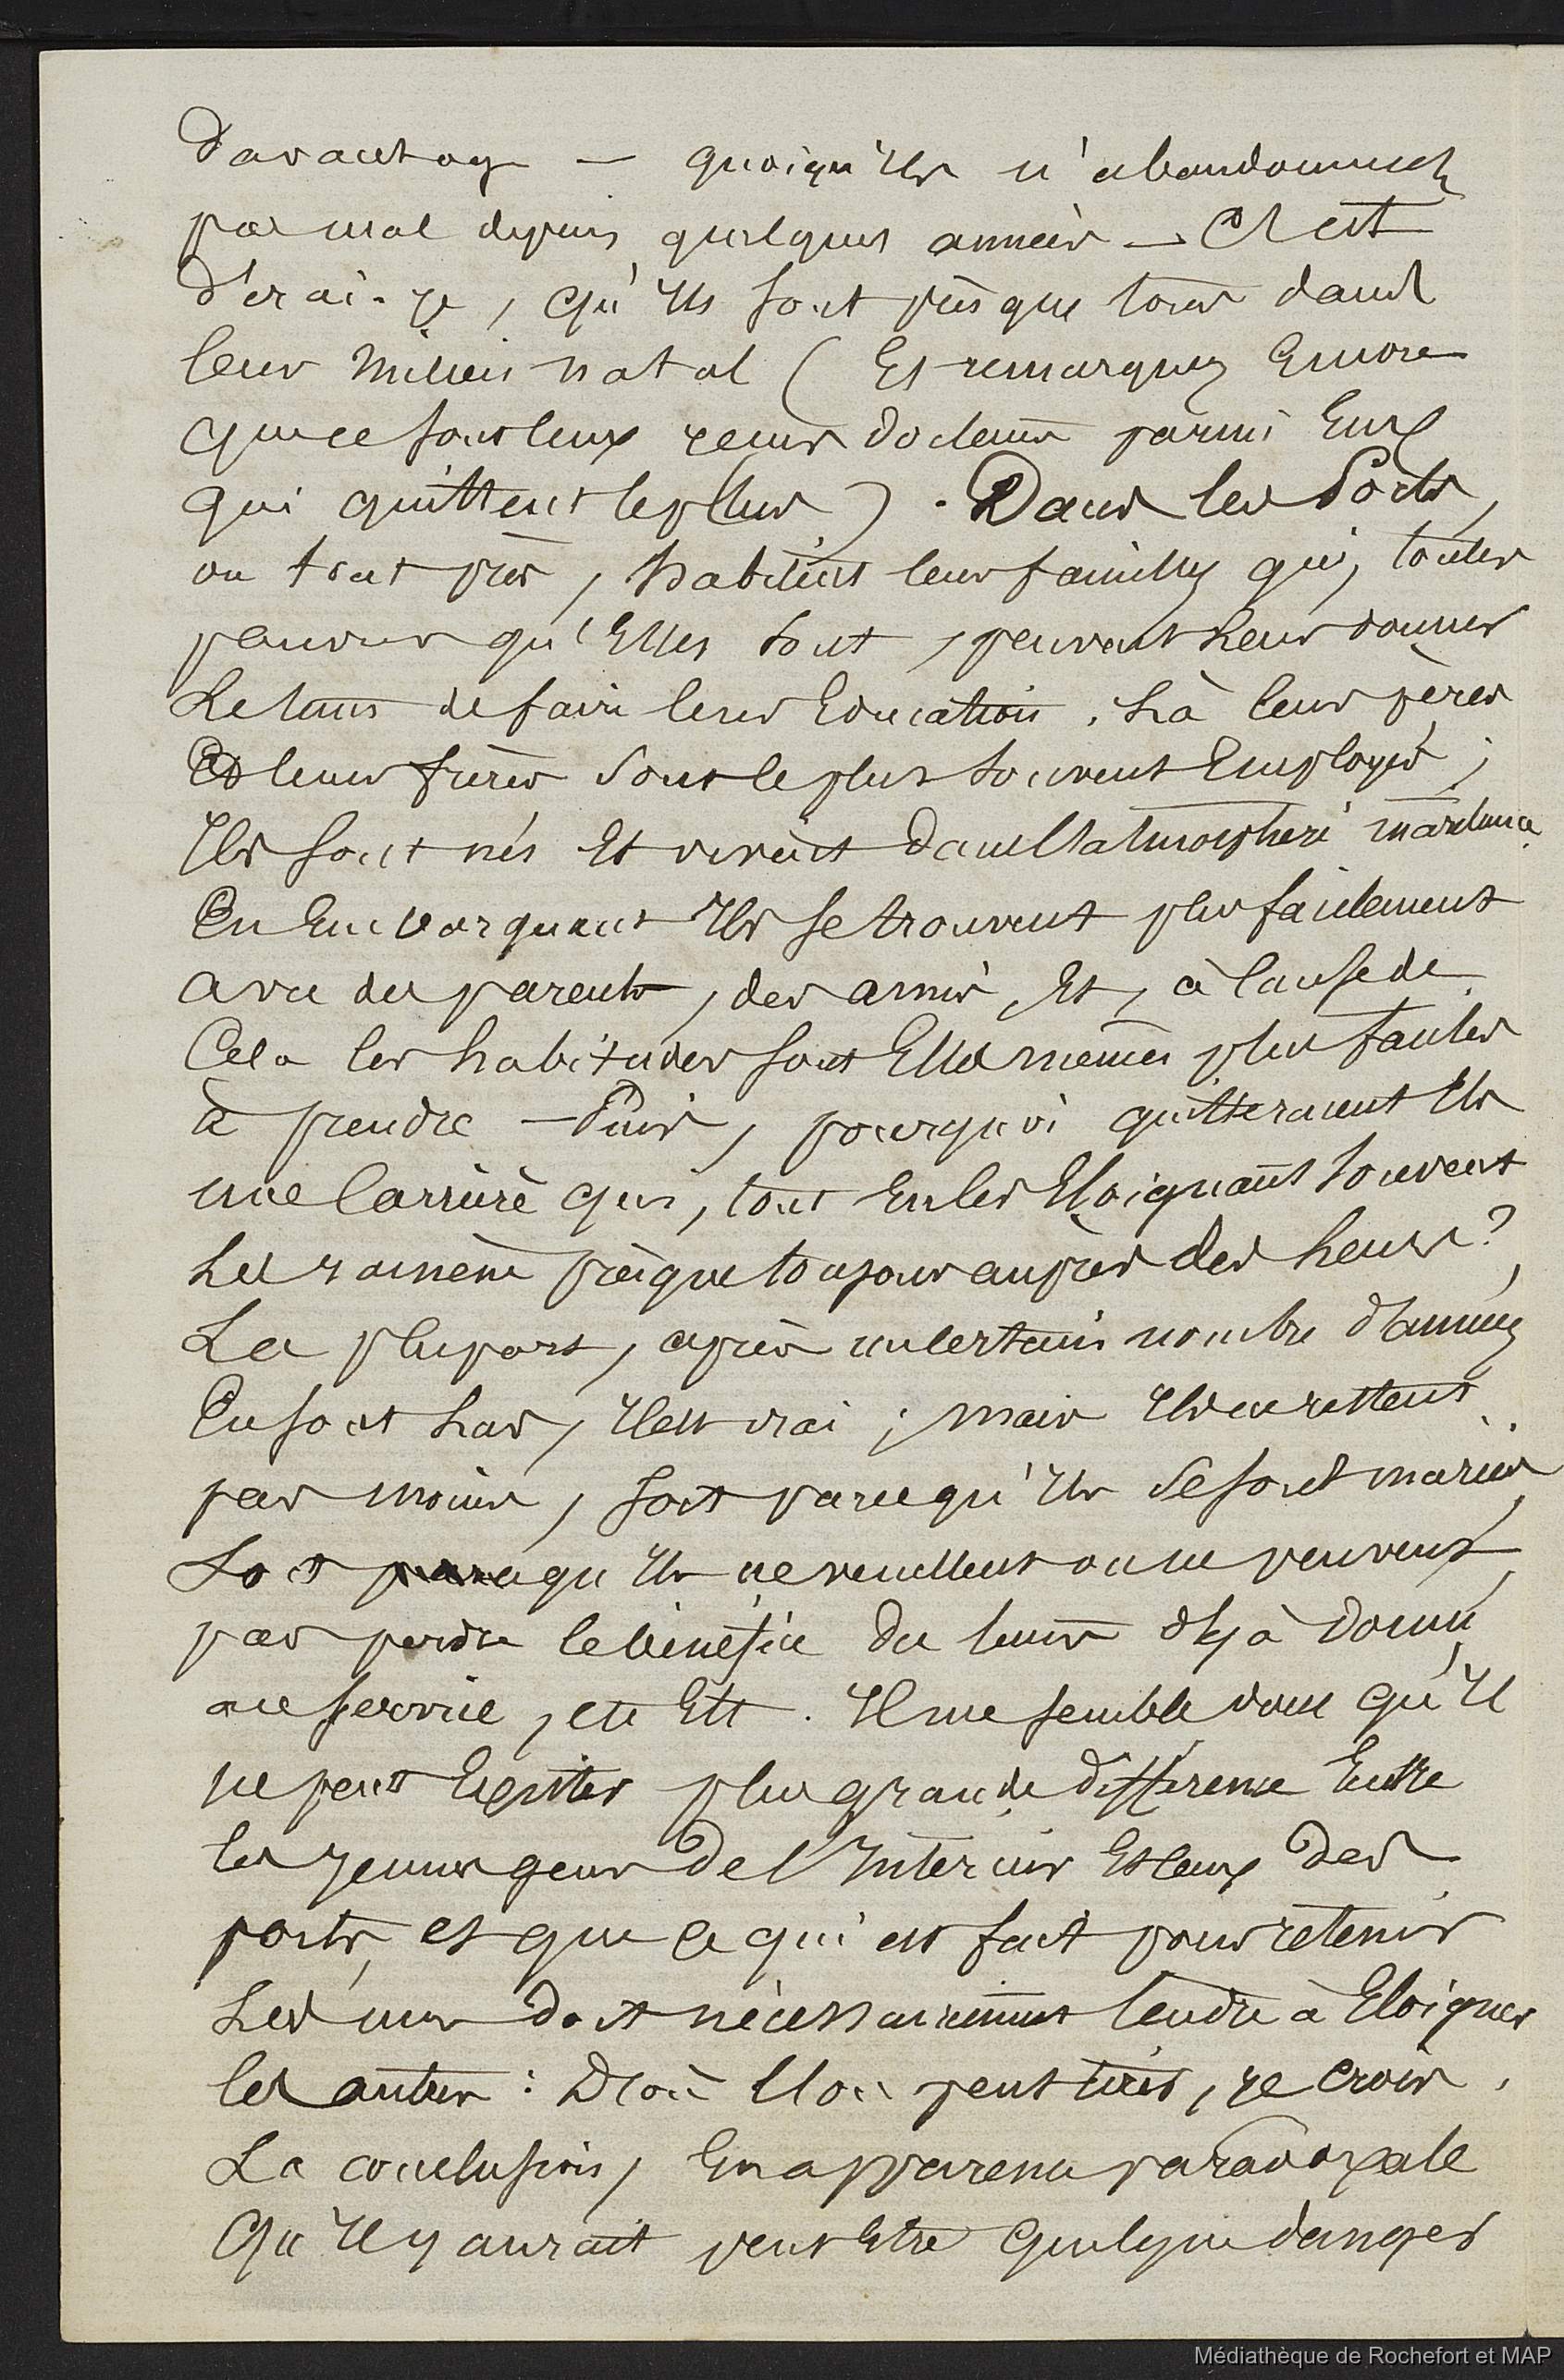 davantage — quoiqu'ils n'abandonnent
pas mal depuis quelques années — C'est
dirai-je, qu'ils sont presque tous dans
leur milieu natal (Et remarquez encore
que ce sont leux jeunes docteurs parmi eux
qui quittent le plus). Dans les Ports,
ou tout près, habitent leurs familles qui, toutes
pauvres qu'elles sont, peuvent leur donner
le temps de faire leur Education. Là leurs pères
Et leurs frères sont le plus souvent Employés;
Ils sont nés Et vivent dans l'atmosphère maritime.
En Embarquant Ils se trouvent plus facilement
avec des parents, des amis, Et, à cause de
Cela les habitudes sont Elles mêmes plus faciles
à prendre — Puis, pourquoi quitteraient Ils
une Carrière qui, tout en les Eloignant souvent
les ramène presque toujours auprès des leurs?
La plupart, après un certain nombre d'années
En sont las, Il est vrai; mais Ils ne restent
pas moins, soit parcequ'Ils se sont mariés,
Soit parcequ'Ils ne veuillent ou ne peuvent
pas perdre le bénéfice du temps déjà donné
au service, etc Etc. Il me semble donc qu'Il
ne peut Exister plus grande différence Entre
les jeunes gens de l'Intérieur Et ceux des
ports, et que ce qui est fait pour retenir
Les uns doit nécessairement tendre à Eloigner
les autres: D'où l'on peut tirer, je crois,
La conclusion, En apparence paradoxale
Qu'Il y aurait peut Etre quelque danger
Médiathèque de Rochefort et MAP